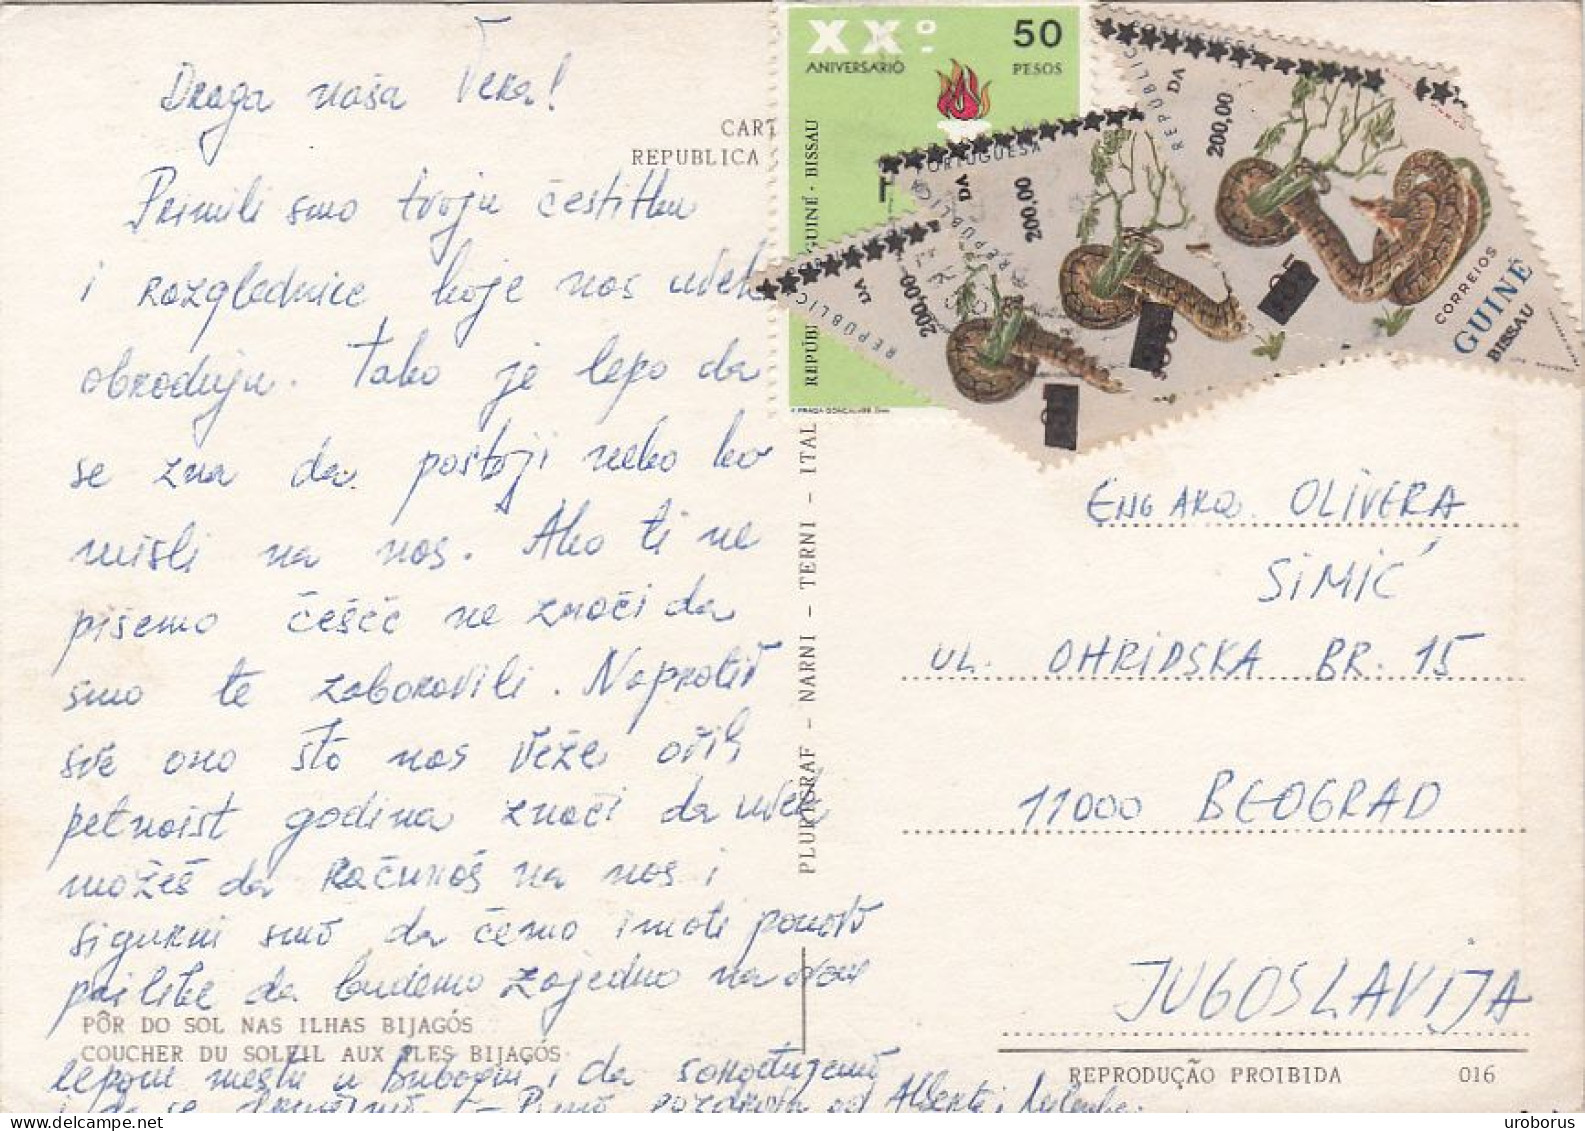 Draga naša Vera!
Primili smo tvoju čestitku
i razglednice koje nas uvek
obraduju. Tako je lepo da
se zna da postoji neko ko
misli na nas. Ako ti ne
pišemo češće ne znači da
smo te zaboravili. Naprotiv
sve ono što nas veže ovih
petnaest godina znači da uvek
možeš da računaš na nas i
sigurni smo da ćemo imati ponovo
prilike da budemo zajedno na
lepom mestu u
i da se
CART
REPUBLICA
PÔR DO SOL NAS ILHAS BIJAGÓS
COUCHER DU SOLEIL AUX ILES BIJAGÓS
PLURIGRAF - NARNI - TERNI - ITAL
XXº
ANIVERSÁRIO
50
PESOS
GUINÉ - BISSAU
REPÚBL
REPUBLICA DA
200,00
PORTUGUESA
REPUBLICA DA
200,00
REPUBLICA DA
200,00
CORREIOS
GUINÉ
BISSAU
ENG ARQ. OLIVERA
SIMIĆ
UL. OHRIDSKA BR. 15
11000 BEOGRAD
JUGOSLAVIJA
REPRODUÇÃO PROIBIDA 016
uroborus